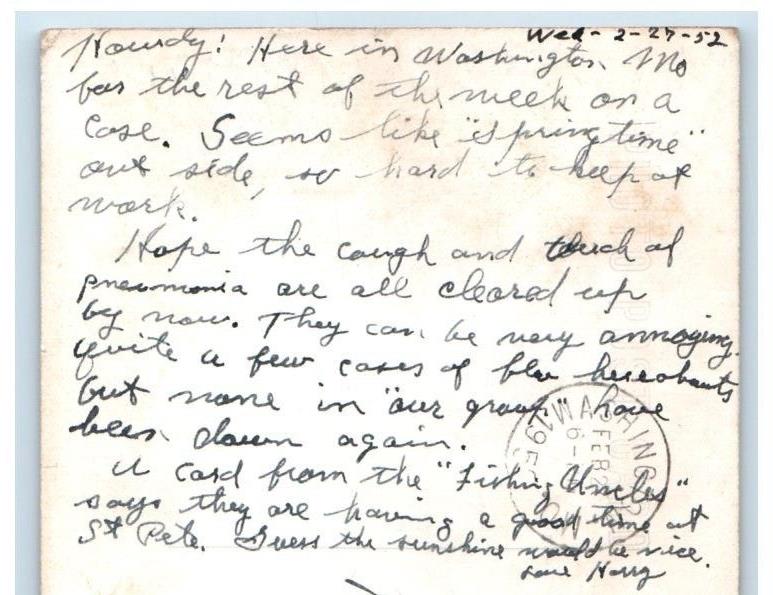 Wed - 2-27-52
Howdy! Here in Washington, Mo
for the rest of the week on a
case. Seems like "springtime"
out side, so hard to keep at
work.
Hope the cough and touch of
pneumonia are all cleared up
by now. They can be very annoying.
Quite a few cases of flu hereabouts
but none in "our group" have
been down again.
A card from the "Fishing Uncles"
says they are having a good time at
St Pete. Guess the sunshine would be nice.
Love Harry
WASHING
FEB 2
6-
AM
195
MO